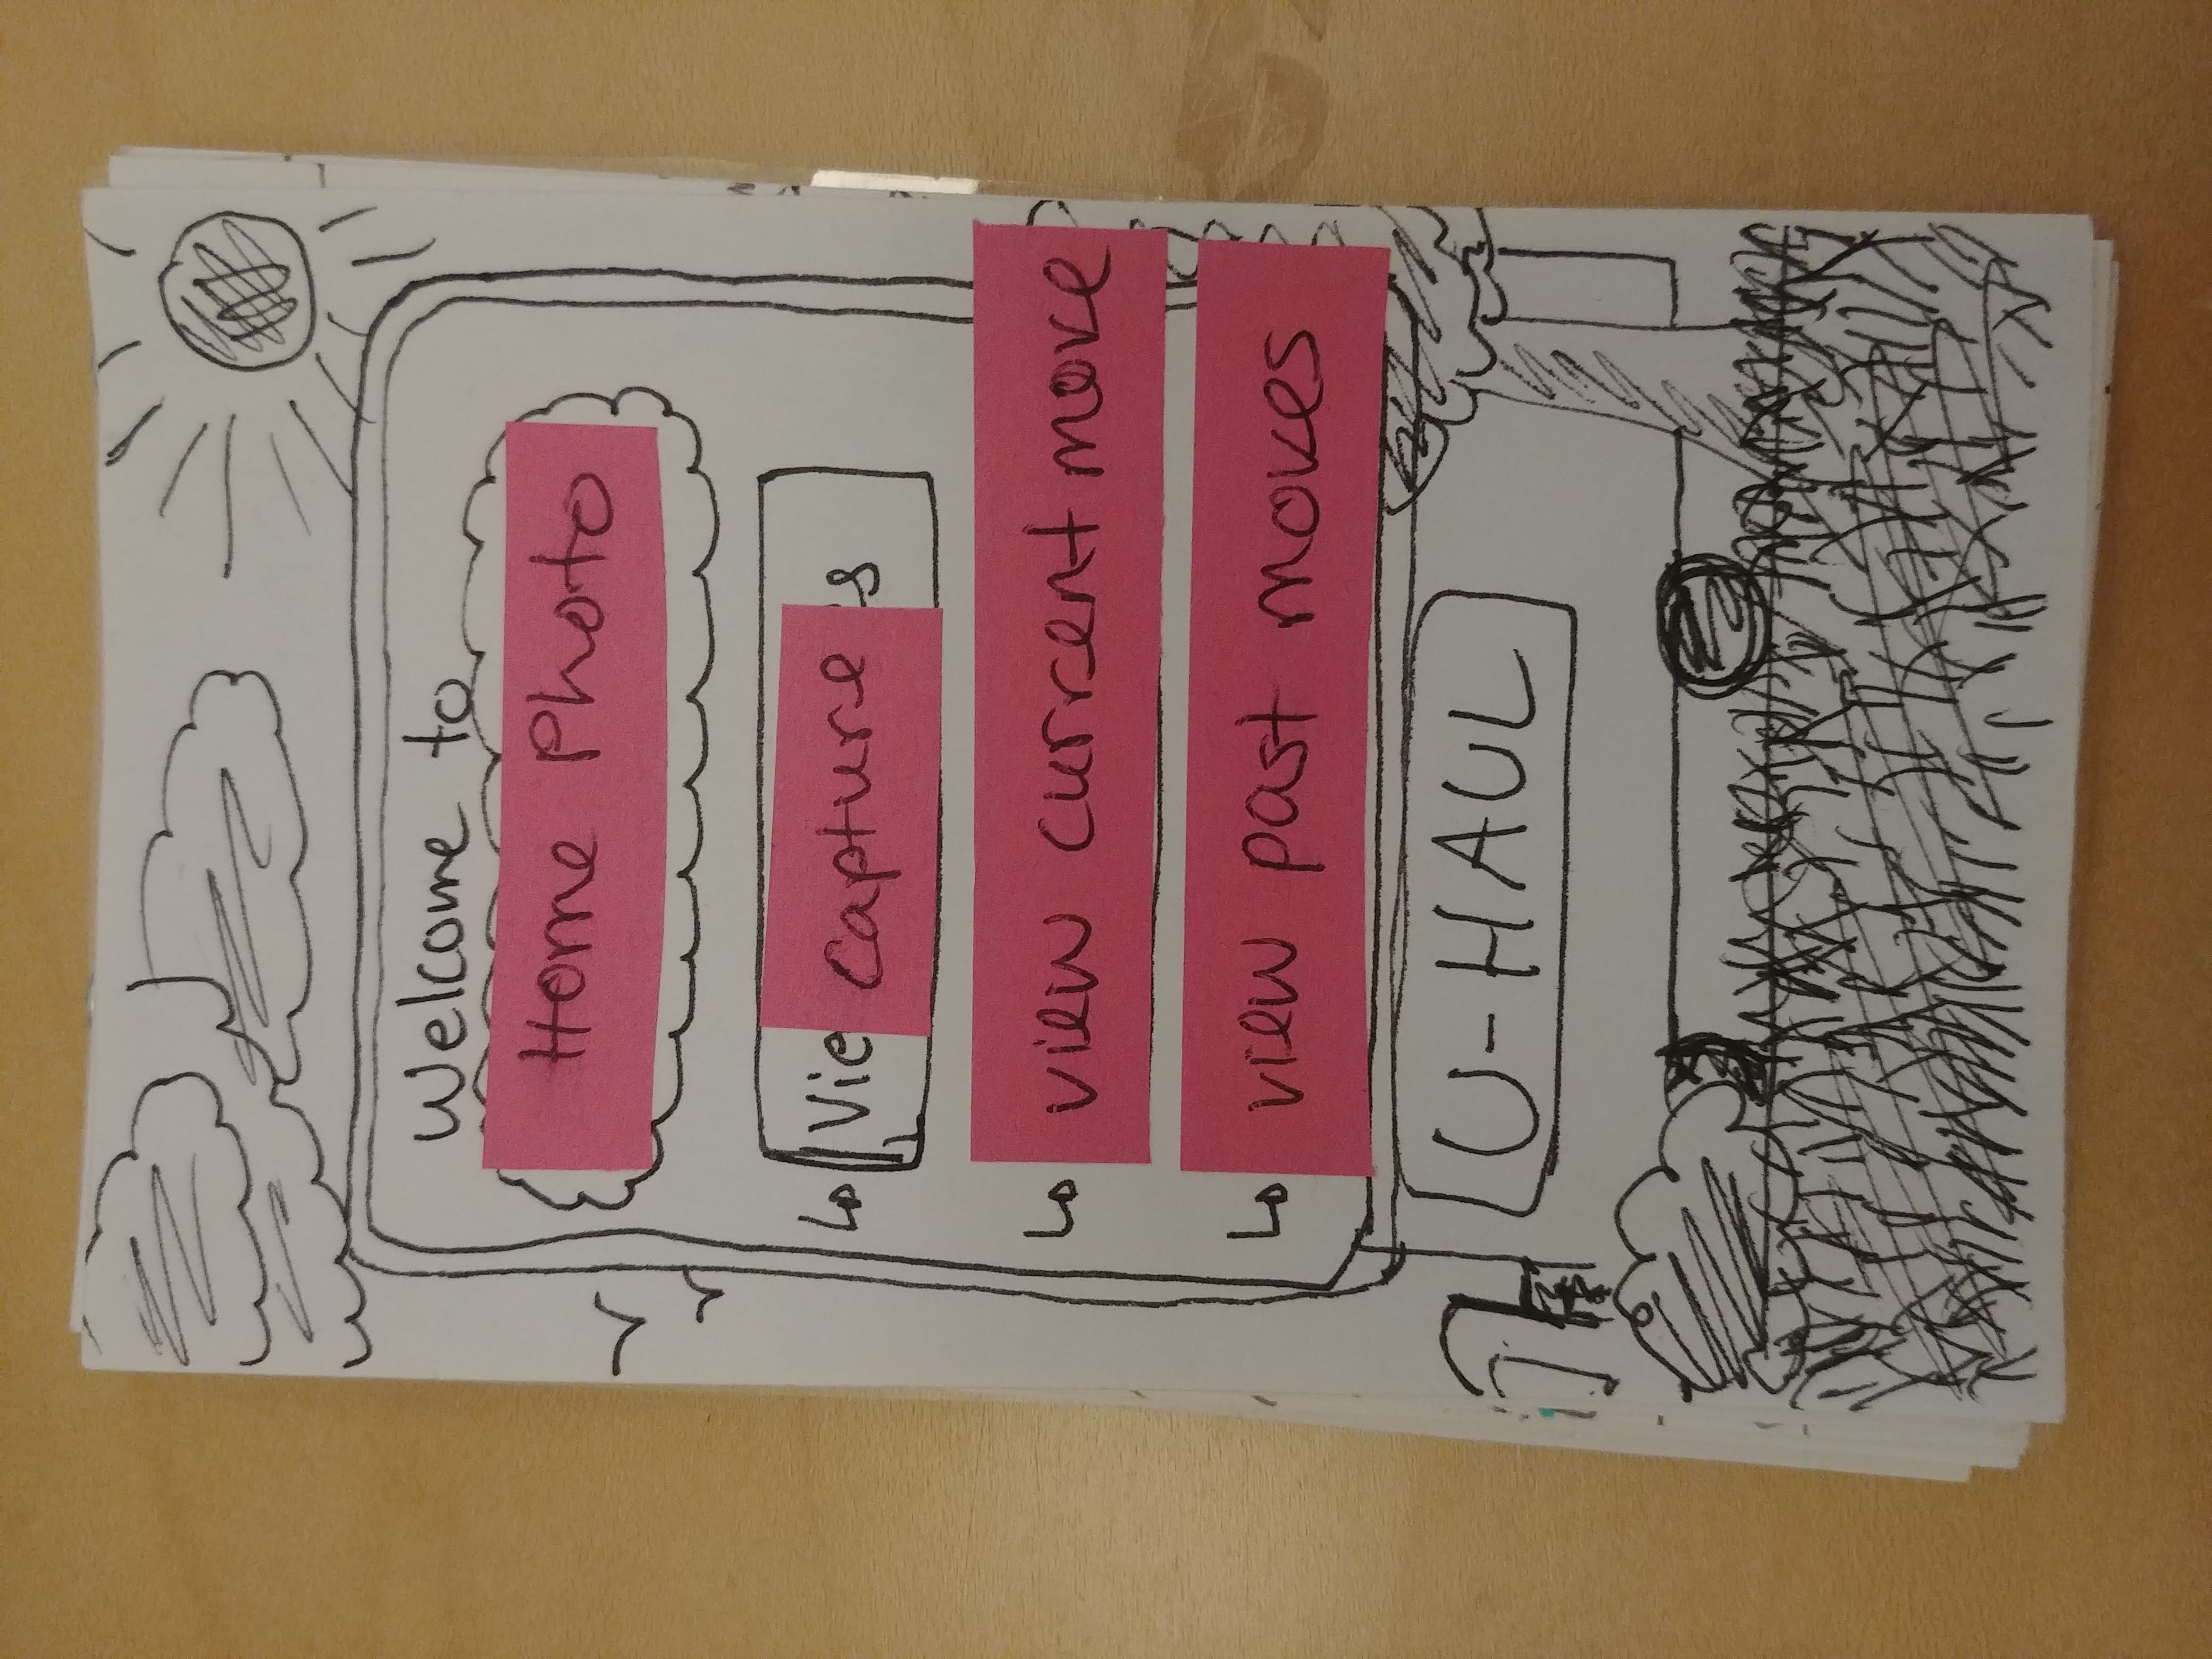 Welcome to
Home Photo
Vie capture s
view current move
view past moves
U-HAUL